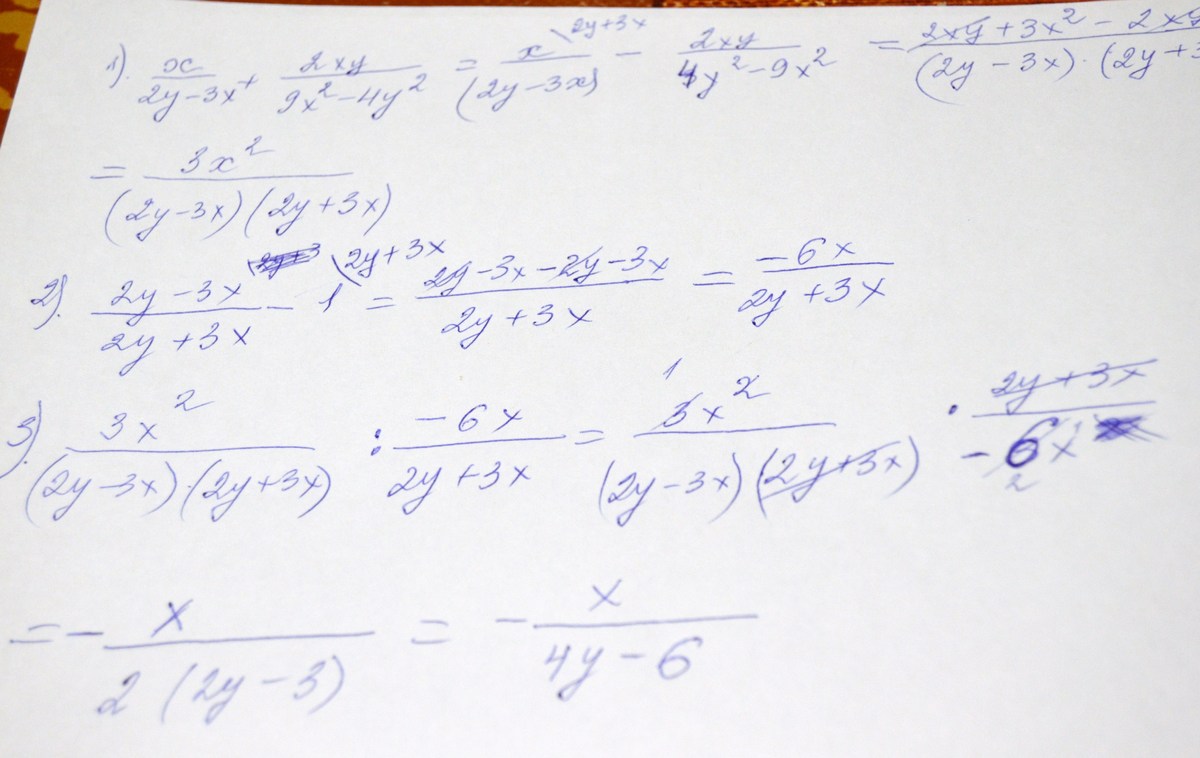 1). x/(2y-3x) + 2xy/(9x²-4y²) = x\2y+3x/(2y-3x) - 2xy/(4y²-9x²) = (2xy+3x²-2xy)/((2y-3x)·(2y+3
= 3x²/((2y-3x)(2y+3x))
2). (2y-3x)/(2y+3x) - 1\2y+3x = (2y-3x-2y-3x)/(2y+3x) = -6x/(2y+3x)
3). 3x²/((2y-3x)·(2y+3x)) : -6x/(2y+3x) = 1 3x²/((2y-3x)(2y+3x)) · (2y+3x)/(-6x) 2
= - x/(2(2y-3)) = - x/(4y-6)